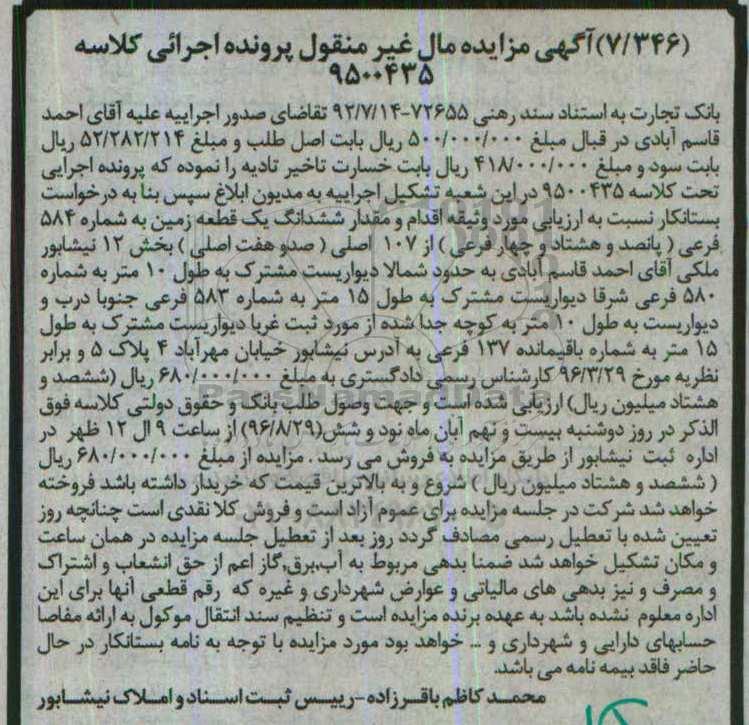 (۷/۳۴۶)آگهی مزایده مال غیر منقول پرونده اجرائی کلاسه
۹۵۰۰۴۳۵
بانک تجارت به استناد سند رهنی ۷۲۶۵۵-۹۲/۷/۱۴ تقاضای صدور اجراییه علیه آقای احمد
قاسم آبادی در قبال مبلغ ۵۰۰/۰۰۰/۰۰۰ ریال بابت اصل طلب و مبلغ ۵۲/۲۸۲/۲۱۴ ریال
بابت سود و مبلغ ۴۱۸/۰۰۰/۰۰۰ ریال بابت خسارت تاخیر تادیه را نموده که پرونده اجرایی
تحت کلاسه ۹۵۰۰۴۳۵ در این شعبه تشکیل اجراییه به مدیون ابلاغ سپس بنا به درخواست
بستانکار نسبت به ارزیابی مورد وثیقه اقدام و مقدار ششدانگ یک قطعه زمین به شماره ۵۸۴
فرعی ( پانصد و هشتاد و چهار فرعی ) از ۱۰۷ اصلی ( صدو هفت اصلی ) بخش ۱۲ نیشابور
ملکی آقای احمد قاسم آبادی به حدود شمالا دیواریست مشترک به طول ۱۰ متر به شماره
۵۸۰ فرعی شرقا دیواریست مشترک به طول ۱۵ متر به شماره ۵۸۳ فرعی جنوبا درب و
دیواریست به طول ۱۰ متر به کوچه جدا شده از مورد ثبت غربا دیواریست مشترک به طول
۱۵ متر به شماره باقیمانده ۱۳۷ فرعی به آدرس نیشابور خیابان مهرآباد ۴ پلاک ۵ و برابر
نظریه مورخ ۹۶/۳/۲۹ کارشناس رسمی دادگستری به مبلغ ۶۸۰/۰۰۰/۰۰۰ ریال (ششصد و
هشتاد میلیون ریال) ارزیابی شده است و جهت وصول طلب بانک و حقوق دولتی کلاسه فوق
الذکر در روز دوشنبه بیست و نهم آبان ماه نود و شش(۹۶/۸/۲۹) از ساعت ۹ ال ۱۲ ظهر در
اداره ثبت نیشابور از طریق مزایده به فروش می رسد . مزایده از مبلغ ۶۸۰/۰۰۰/۰۰۰ ریال
( ششصد و هشتاد میلیون ریال ) شروع و به بالاترین قیمت که خریدار داشته باشد فروخته
خواهد شد شرکت در جلسه مزایده برای عموم آزاد است و فروش کلا نقدی است چنانچه روز
تعیین شده با تعطیل رسمی مصادف گردد روز بعد از تعطیل جلسه مزایده در همان ساعت
و مکان تشکیل خواهد شد ضمنا بدهی مربوط به آب,برق,گاز اعم از حق انشعاب و اشتراک
و مصرف و نیز بدهی های مالیاتی و عوارض شهرداری و غیره که رقم قطعی آنها برای این
اداره معلوم نشده باشد به عهده برنده مزایده است و تنظیم سند انتقال موکول به ارائه مفاصا
حسابهای دارایی و شهرداری و ... خواهد بود مورد مزایده با توجه به نامه بستانکار در حال
حاضر فاقد بیمه نامه می باشد.
محمد کاظم باقرزاده-رییس ثبت اسناد و املاک نیشابور